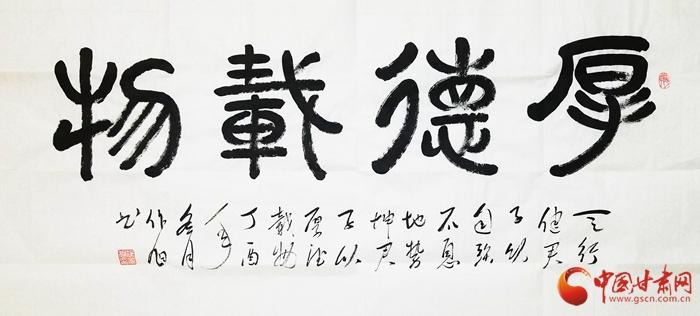 厚德載物
天行
健君
子以
自强
不息
地势
坤君
子以
厚德
載物
丁酉
年
冬月
作旭
书
中国甘肃网
www.gscn.com.cn